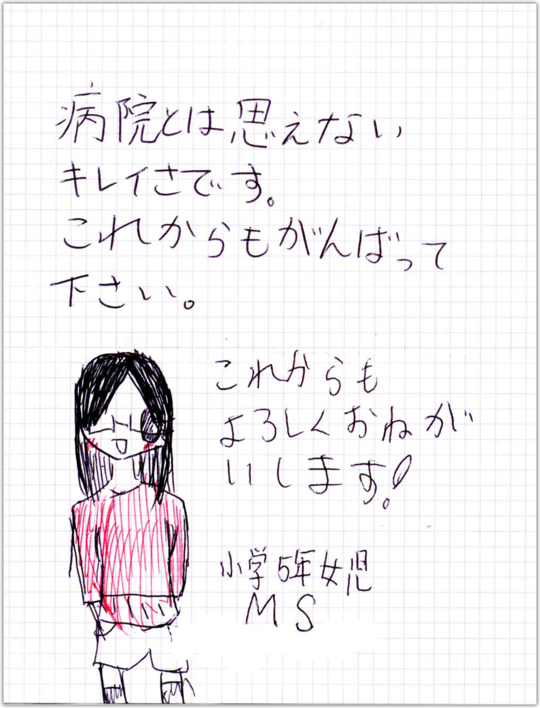 病院とは思えない
キレイさです。
これからもがんばって
下さい。
これからも
よろしくおねが
いします!
小学5年女児
MS